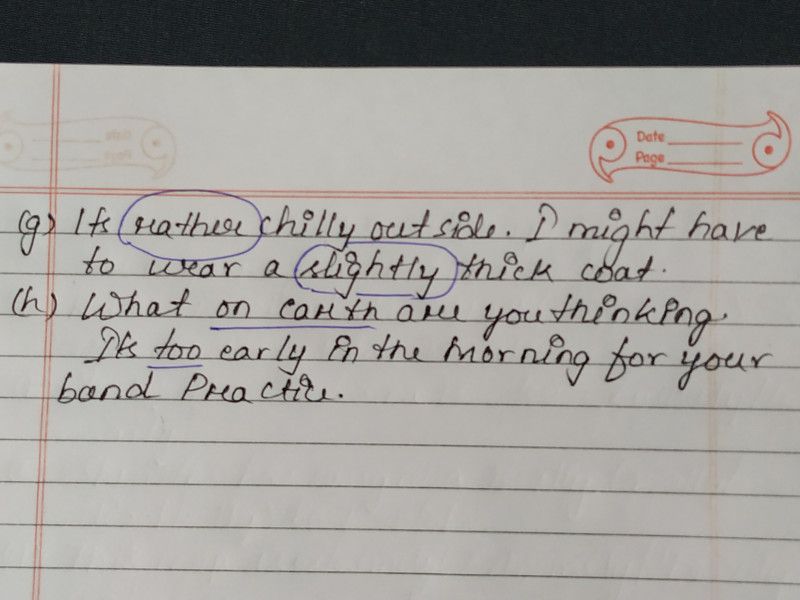 Date
Page
(g) Its rather chilly outside. I might have
to wear a slightly thick coat.
(h) What on earth are you thinking.
Its too early in the morning for your
band Practice.